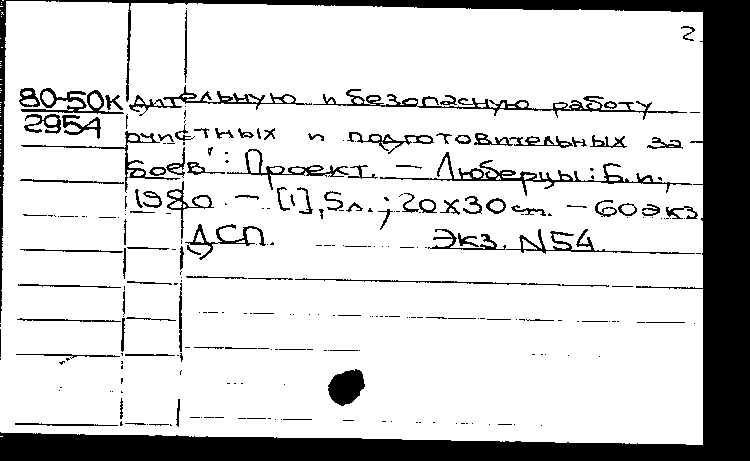 2.
80-50К дительную и безопасную работу
2954 очистных и подготовительных за-
боев": Проект. – Люберцы: Б.и.,
1980. – [1], 5л.; 20x30 см. – 60 экз.
ДСП. Экз. N54.